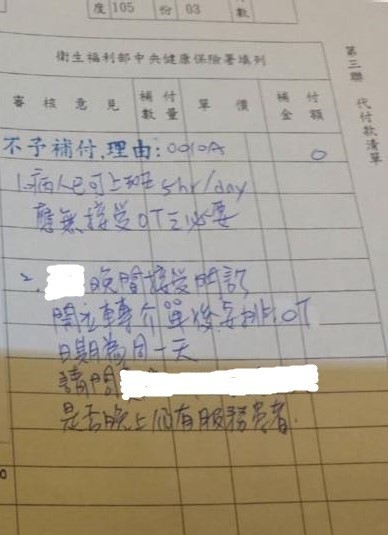 度 105 份 03 款
衛生福利部中央健康保險署填列
審核意見 補付數量 單價 補付金額
第三聯 代付款清單
不予補付,理由:0010A 0
1.病人已可上班5hr/day
應無接受OT之必要
2. 晚間接受所訂
開立轉介單後安排OT
日期為同一天
請問
是否晚上仍有服務患者.